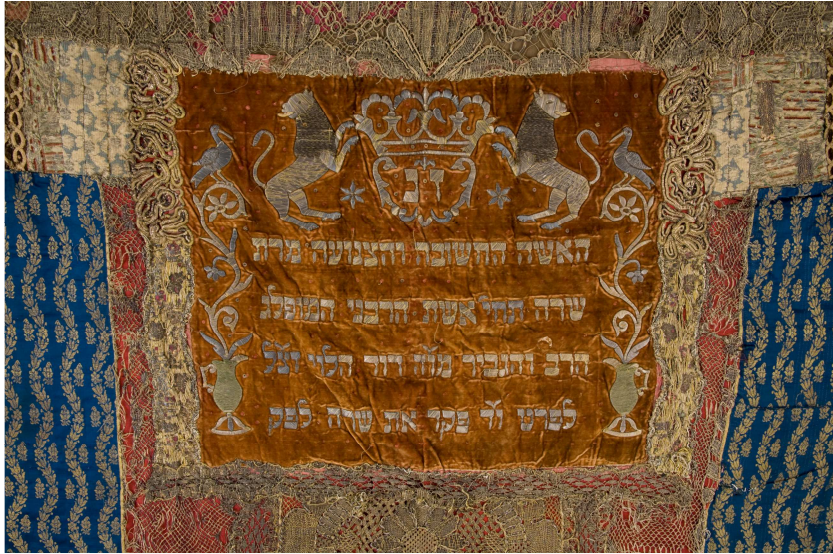 האשה החשובה והצנועה מרת
שרה תחי' אשת הרבני המופלג
הרב והנגיד מו"ה דוד הלוי
לפרט וי' פקד את שרה לפק